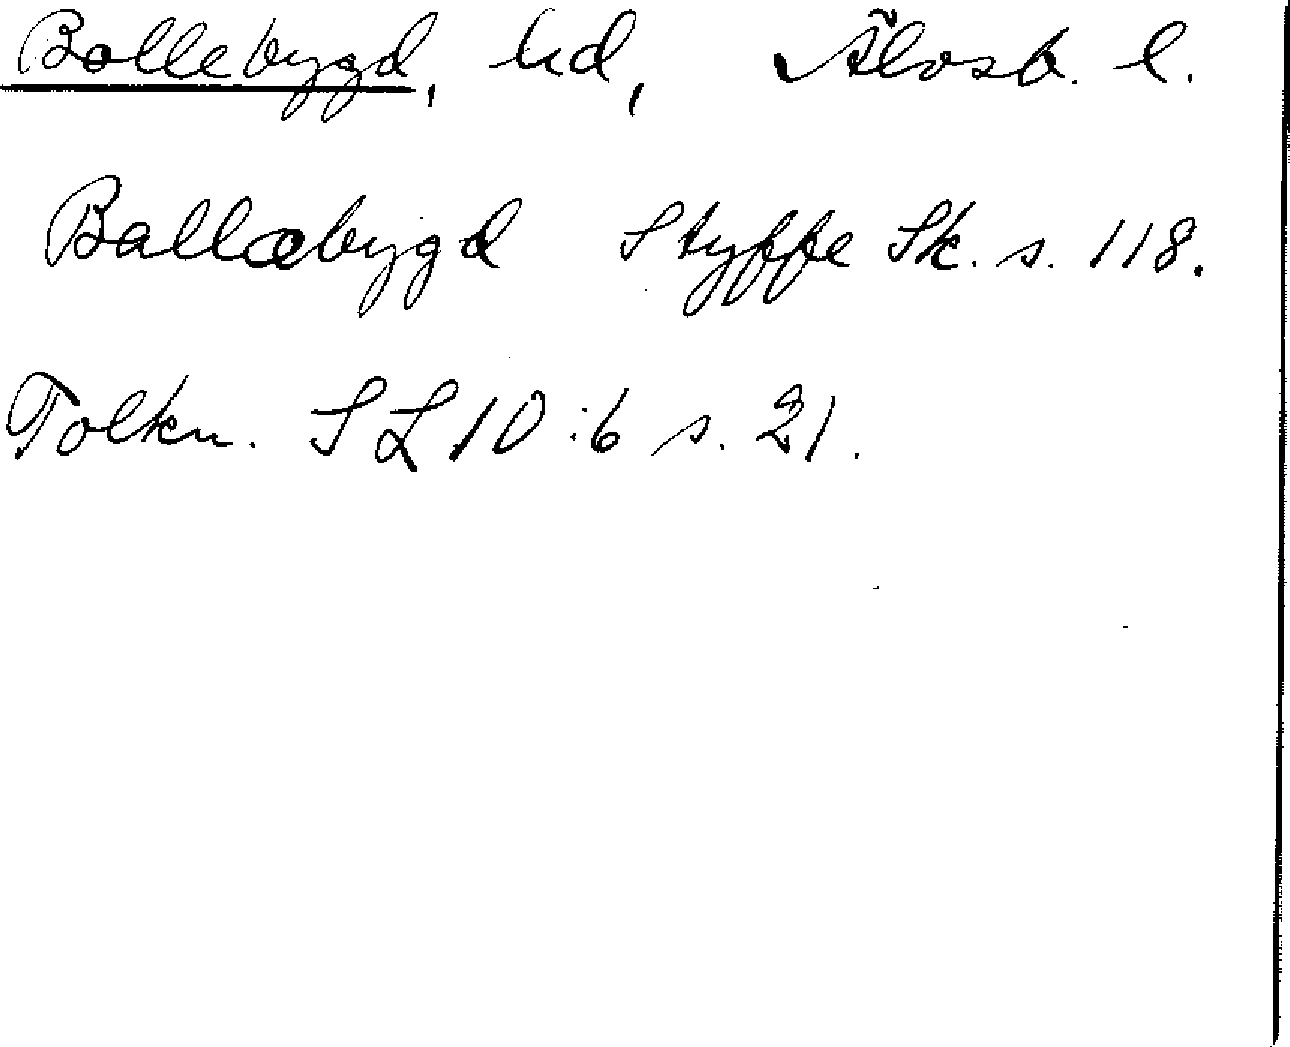 Bollebygd, hd, Älvsb. l.
Ballæbygd Styffe Sk. s. 118.
Tolkn. SL 10:6 s. 21.